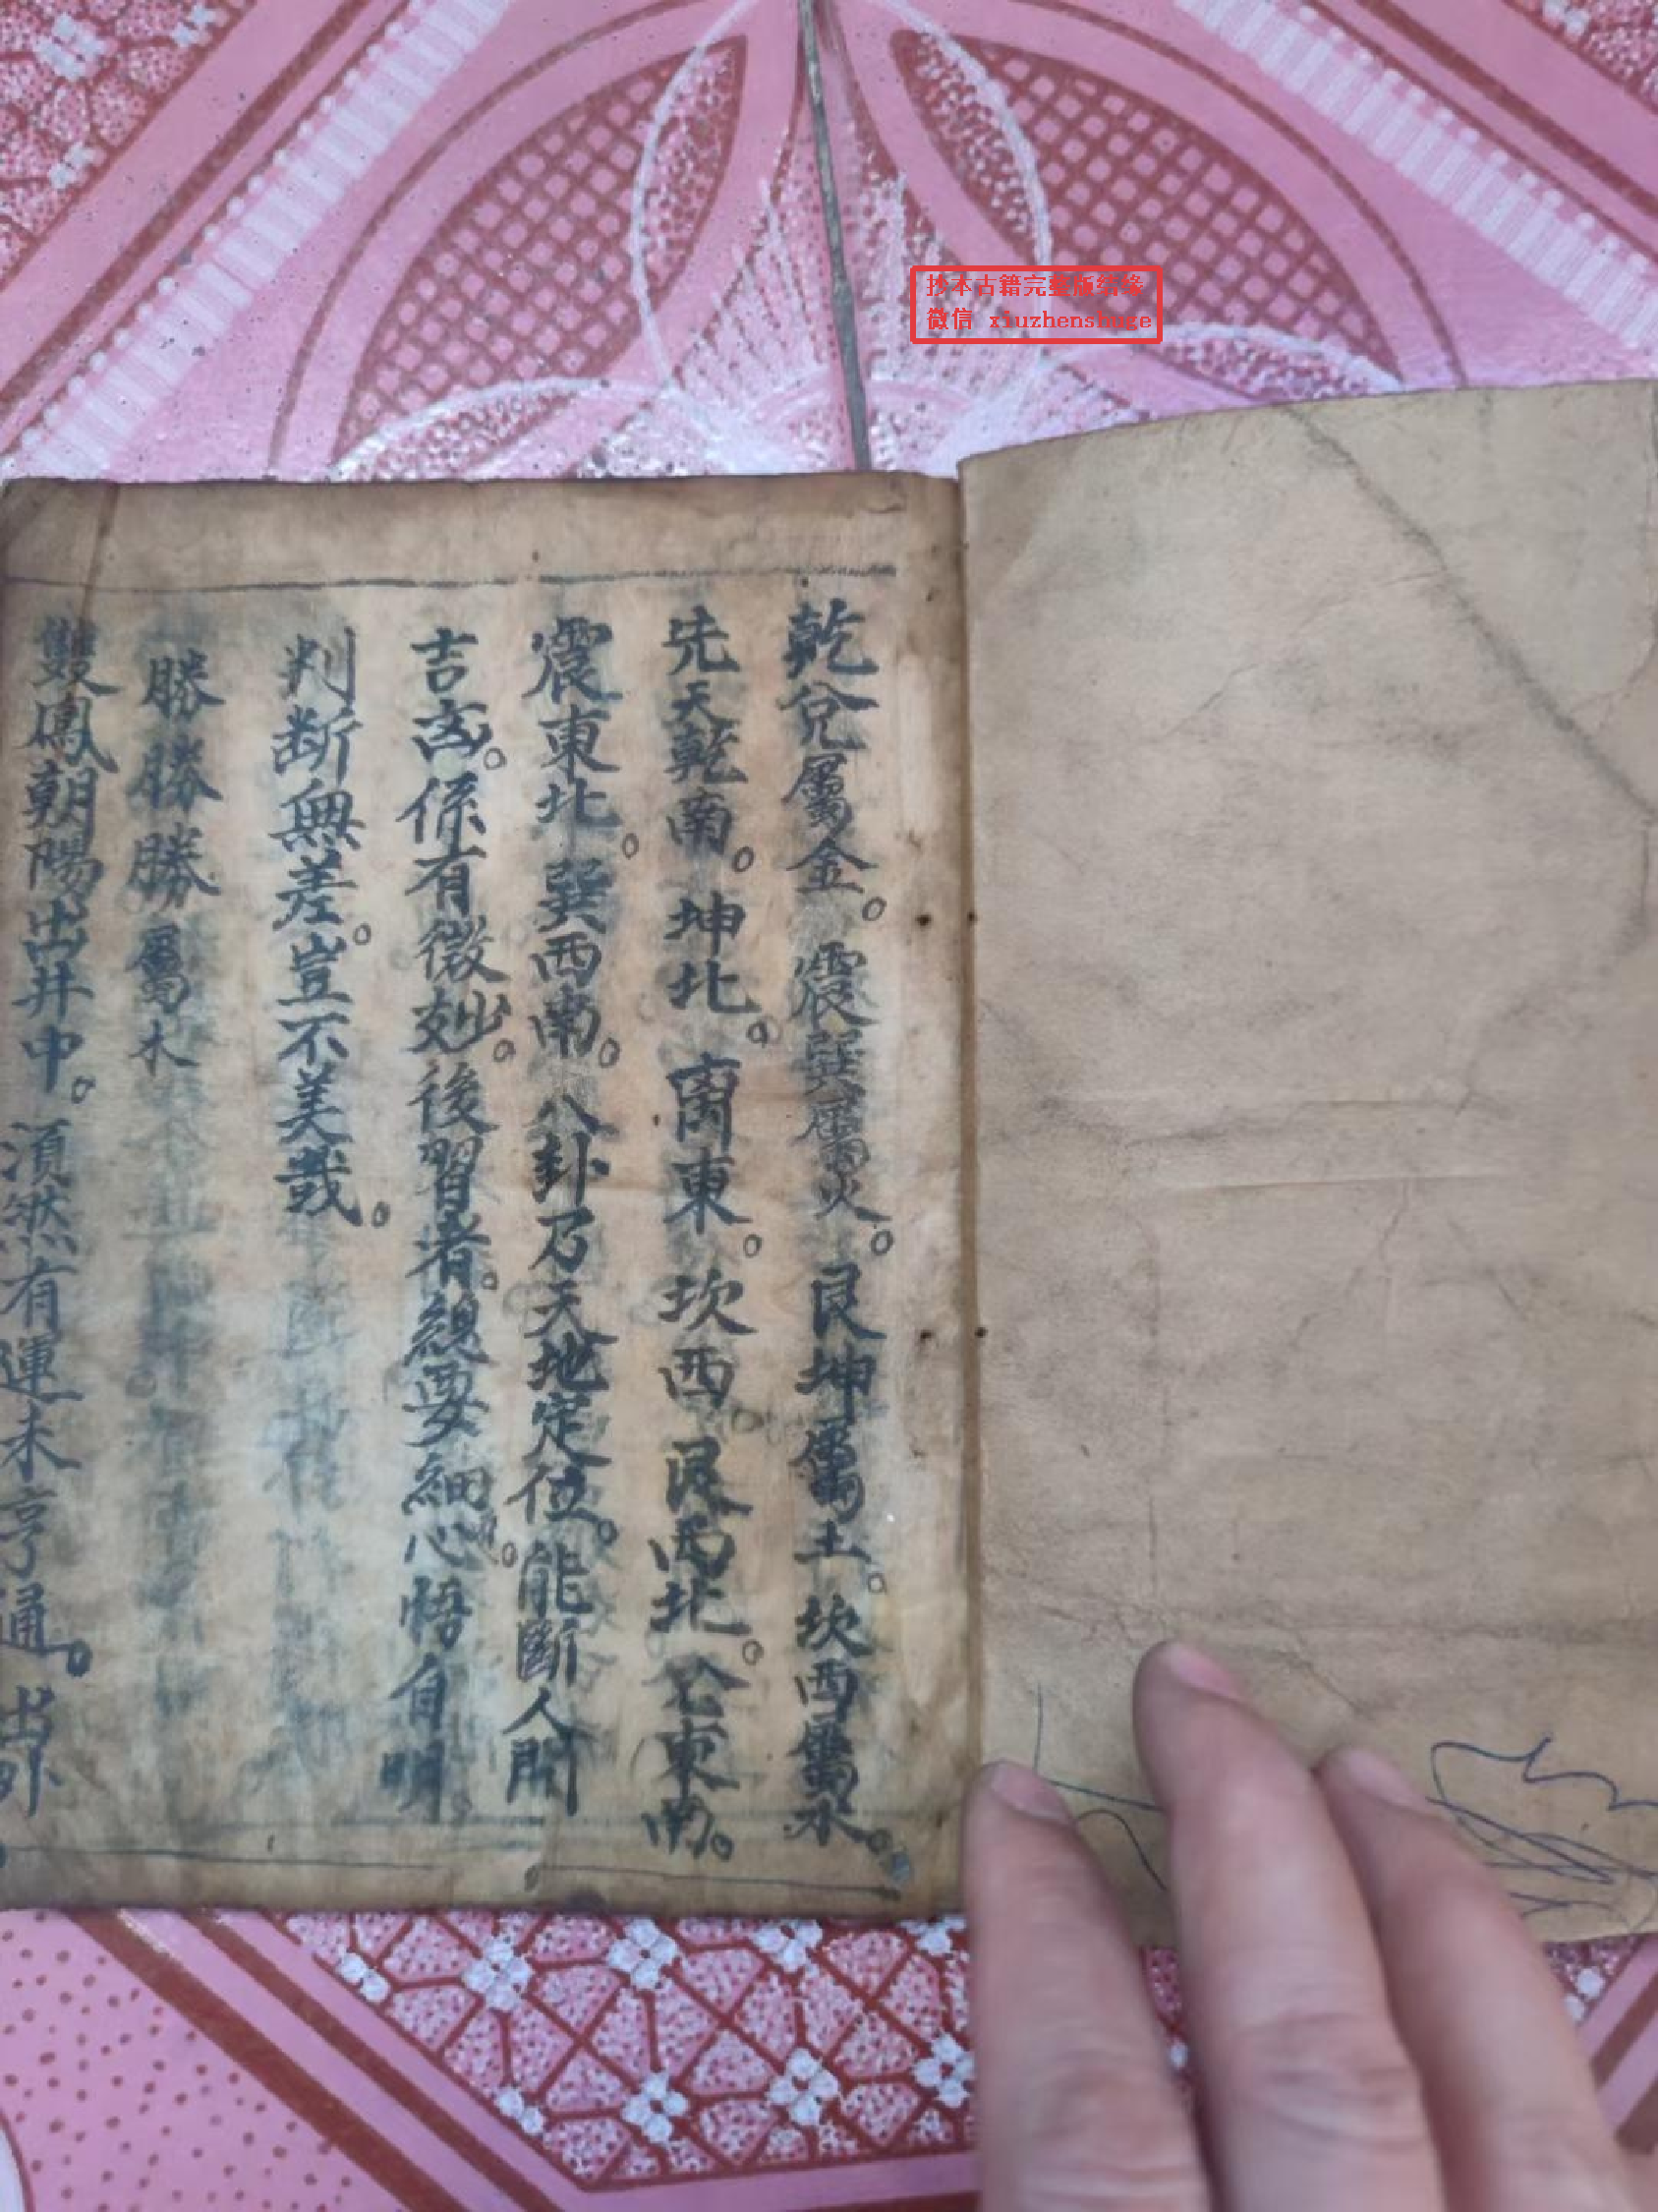 抄本古籍完整版结缘
微信 xiuzhenshuge
乾兌屬金。震巽屬火。艮坤屬土。坎西屬水。
先天乾南。坤北。离東。坎西艮西北。兊東南。
震東北。巽西南。八卦乃天地定位。能斷人間
吉凶。係有微妙。後習者。總要細心。悟自明
判断無差。豈不美哉。
勝勝勝屬木
雙鳳朝陽出井中。須然有運未亨通。出外